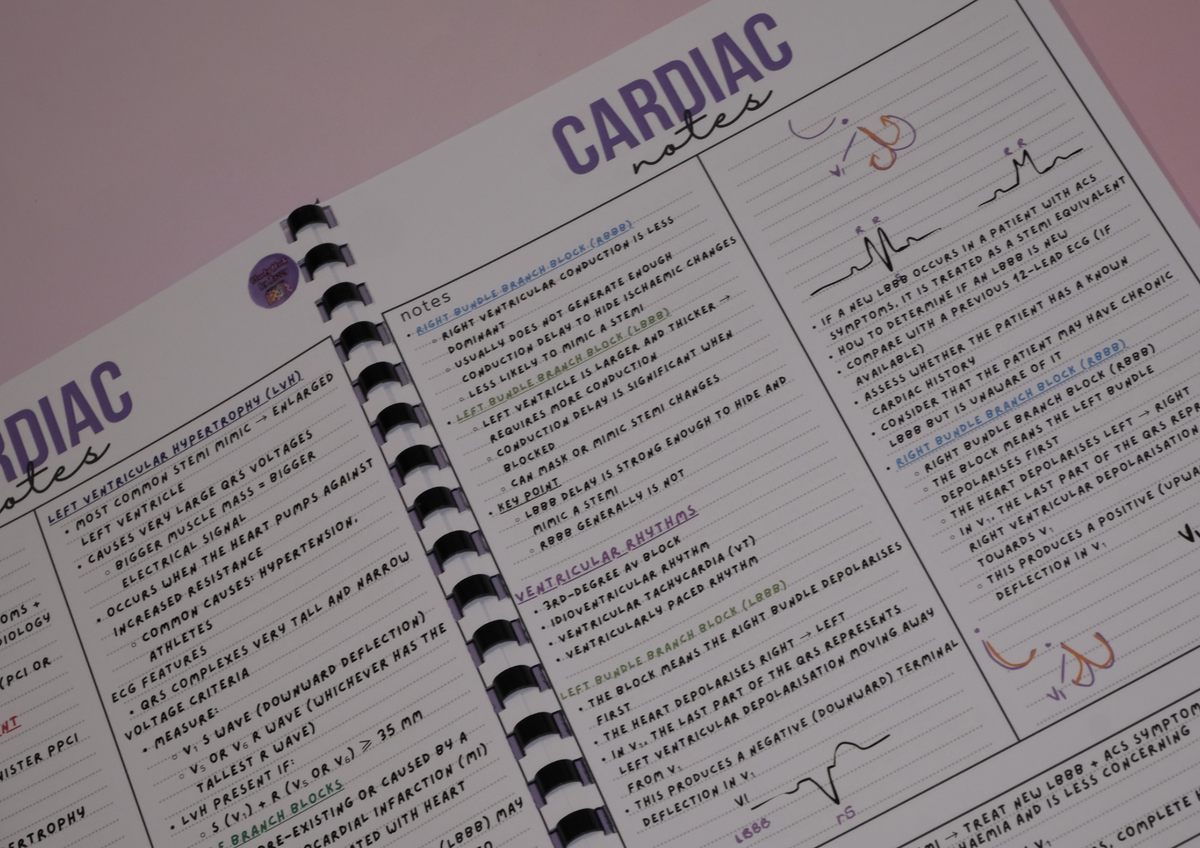 RDIAC
notes
OMS +
DIOLOGY
(PCI OR
NT
NISTER PPCI
ERTROPHY
LEFT VENTRICULAR HYPERTROPHY (LVH)
• MOST COMMON STEMI MIMIC → ENLARGED
LEFT VENTRICLE
• CAUSES VERY LARGE QRS VOLTAGES
◦ BIGGER MUSCLE MASS = BIGGER
ELECTRICAL SIGNAL
OCCURS WHEN THE HEART PUMPS AGAINST
INCREASED RESISTANCE
◦ COMMON CAUSES: HYPERTENSION,
ATHLETES
ECG FEATURES
• QRS COMPLEXES VERY TALL AND NARROW
VOLTAGE CRITERIA
• MEASURE:
◦ V₁ S WAVE (DOWNWARD DEFLECTION)
◦ V₅ OR V₆ R WAVE (WHICHEVER HAS THE
TALLEST R WAVE)
• LVH PRESENT IF:
◦ S (V₁) + R (V₅ OR V₆) ⩾ 35 MM
BRANCH BLOCKS
PRE-EXISTING OR CAUSED BY A
OCARDIAL INFARCTION (MI)
ATED WITH HEART
(LBBB) MAY
CARDIAC
notes
notes
• RIGHT BUNDLE BRANCH BLOCK (RBBB)
◦ RIGHT VENTRICULAR CONDUCTION IS LESS
DOMINANT
◦ USUALLY DOES NOT GENERATE ENOUGH
CONDUCTION DELAY TO HIDE ISCHAEMIC CHANGES
◦ LESS LIKELY TO MIMIC A STEMI
• LEFT BUNDLE BRANCH BLOCK (LBBB)
◦ LEFT VENTRICLE IS LARGER AND THICKER →
REQUIRES MORE CONDUCTION
◦ CONDUCTION DELAY IS SIGNIFICANT WHEN
BLOCKED
◦ CAN MASK OR MIMIC STEMI CHANGES
• KEY POINT
◦ LBBB DELAY IS STRONG ENOUGH TO HIDE AND
MIMIC A STEMI
◦ RBBB GENERALLY IS NOT
VENTRICULAR RHYTHMS
• 3RD-DEGREE AV BLOCK
• IDIOVENTRICULAR RHYTHM
• VENTRICULAR TACHYCARDIA (VT)
• VENTRICULARLY PACED RHYTHM
LEFT BUNDLE BRANCH BLOCK (LBBB)
• THE BLOCK MEANS THE RIGHT BUNDLE DEPOLARISES
FIRST
• THE HEART DEPOLARISES RIGHT → LEFT
• IN V₁, THE LAST PART OF THE QRS REPRESENTS
LEFT VENTRICULAR DEPOLARISATION MOVING AWAY
FROM V₁
• THIS PRODUCES A NEGATIVE (DOWNWARD) TERMINAL
DEFLECTION IN V₁
V1
LBBB
rS
V1
R R
R R
• IF A NEW LBBB OCCURS IN A PATIENT WITH ACS
SYMPTOMS, IT IS TREATED AS A STEMI EQUIVALENT
• HOW TO DETERMINE IF AN LBBB IS NEW
• COMPARE WITH A PREVIOUS 12-LEAD ECG (IF
AVAILABLE)
• ASSESS WHETHER THE PATIENT HAS A KNOWN
CARDIAC HISTORY
• CONSIDER THAT THE PATIENT MAY HAVE CHRONIC
LBBB BUT IS UNAWARE OF IT
• RIGHT BUNDLE BRANCH BLOCK (RBBB)
◦ RIGHT BUNDLE BRANCH BLOCK (RBBB)
◦ THE BLOCK MEANS THE LEFT BUNDLE
DEPOLARISES FIRST
◦ THE HEART DEPOLARISES LEFT → RIGHT
◦ IN V₁, THE LAST PART OF THE QRS REP
RIGHT VENTRICULAR DEPOLARISATION
TOWARDS V₁
◦ THIS PRODUCES A POSITIVE (UPW
DEFLECTION IN V₁
V₁
V1
→ TREAT NEW LBBB + ACS SYMPTOM
AEMIA AND IS LESS CONCERNING
COMPLETE